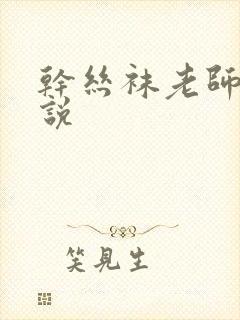 幹絲袜老師
說
笑見生